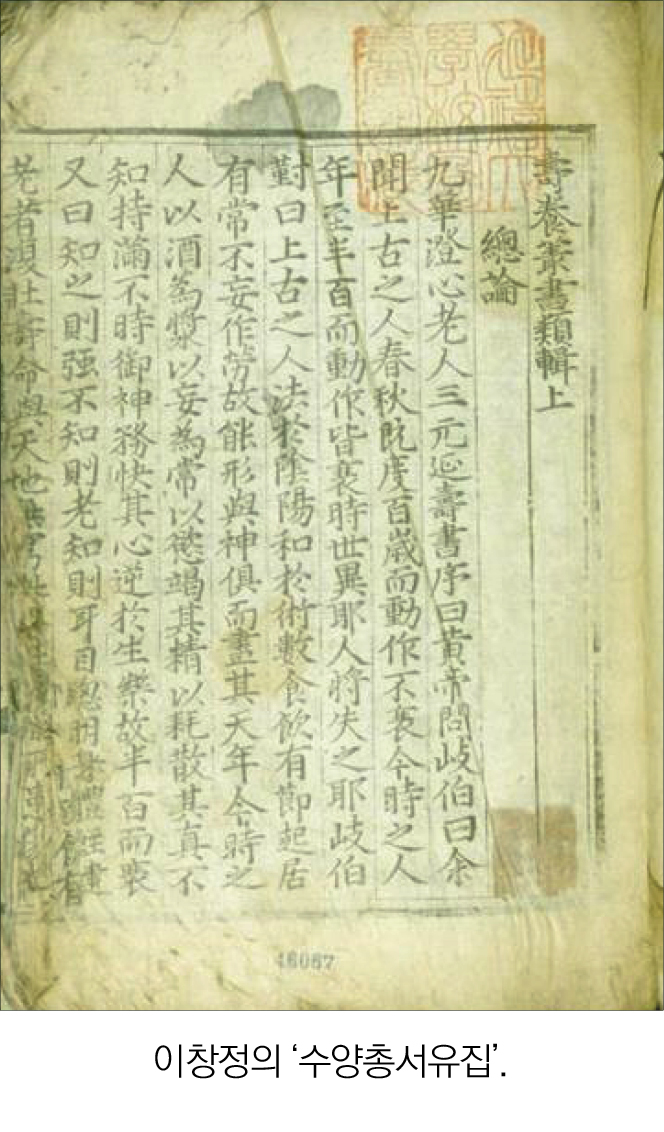 壽養叢書類輯上
總論
九華澄心老人三元延壽書序曰黃帝問岐伯曰余
聞上古之人春秋旣度百歲而動作不衰今時之人
年至半百而動作皆衰時世異耶人將失之耶岐伯
對曰上古之人法於陰陽和於術數食飮有節起居
有常不妄作勞故能形與神俱而盡其天年今時之
人以酒爲漿以妄爲常以慾竭其精以耗散其真不
知持滿不時御神務快其心逆於生樂故半百而衰
又曰知之則强不知則老知則耳目聰明身體輕
老者復壯壽命與天地
46067
이창정의 ‘수양총서유집’.